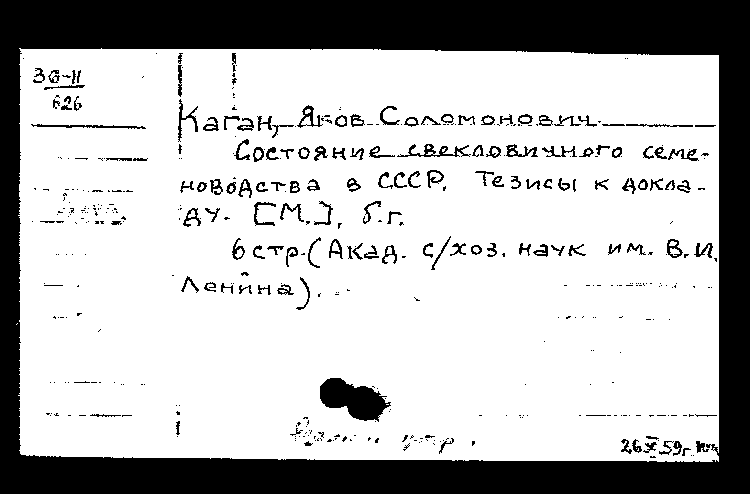 3G-II
626
Каган, Яков Соломонович.
Состояние свекловичного семе-
новодства в СССР. Тезисы к докла-
ду. [М.], б.г.
6 стр. (Акад. с/хоз. наук им. В.И.
Ленина).
26 X 59г.